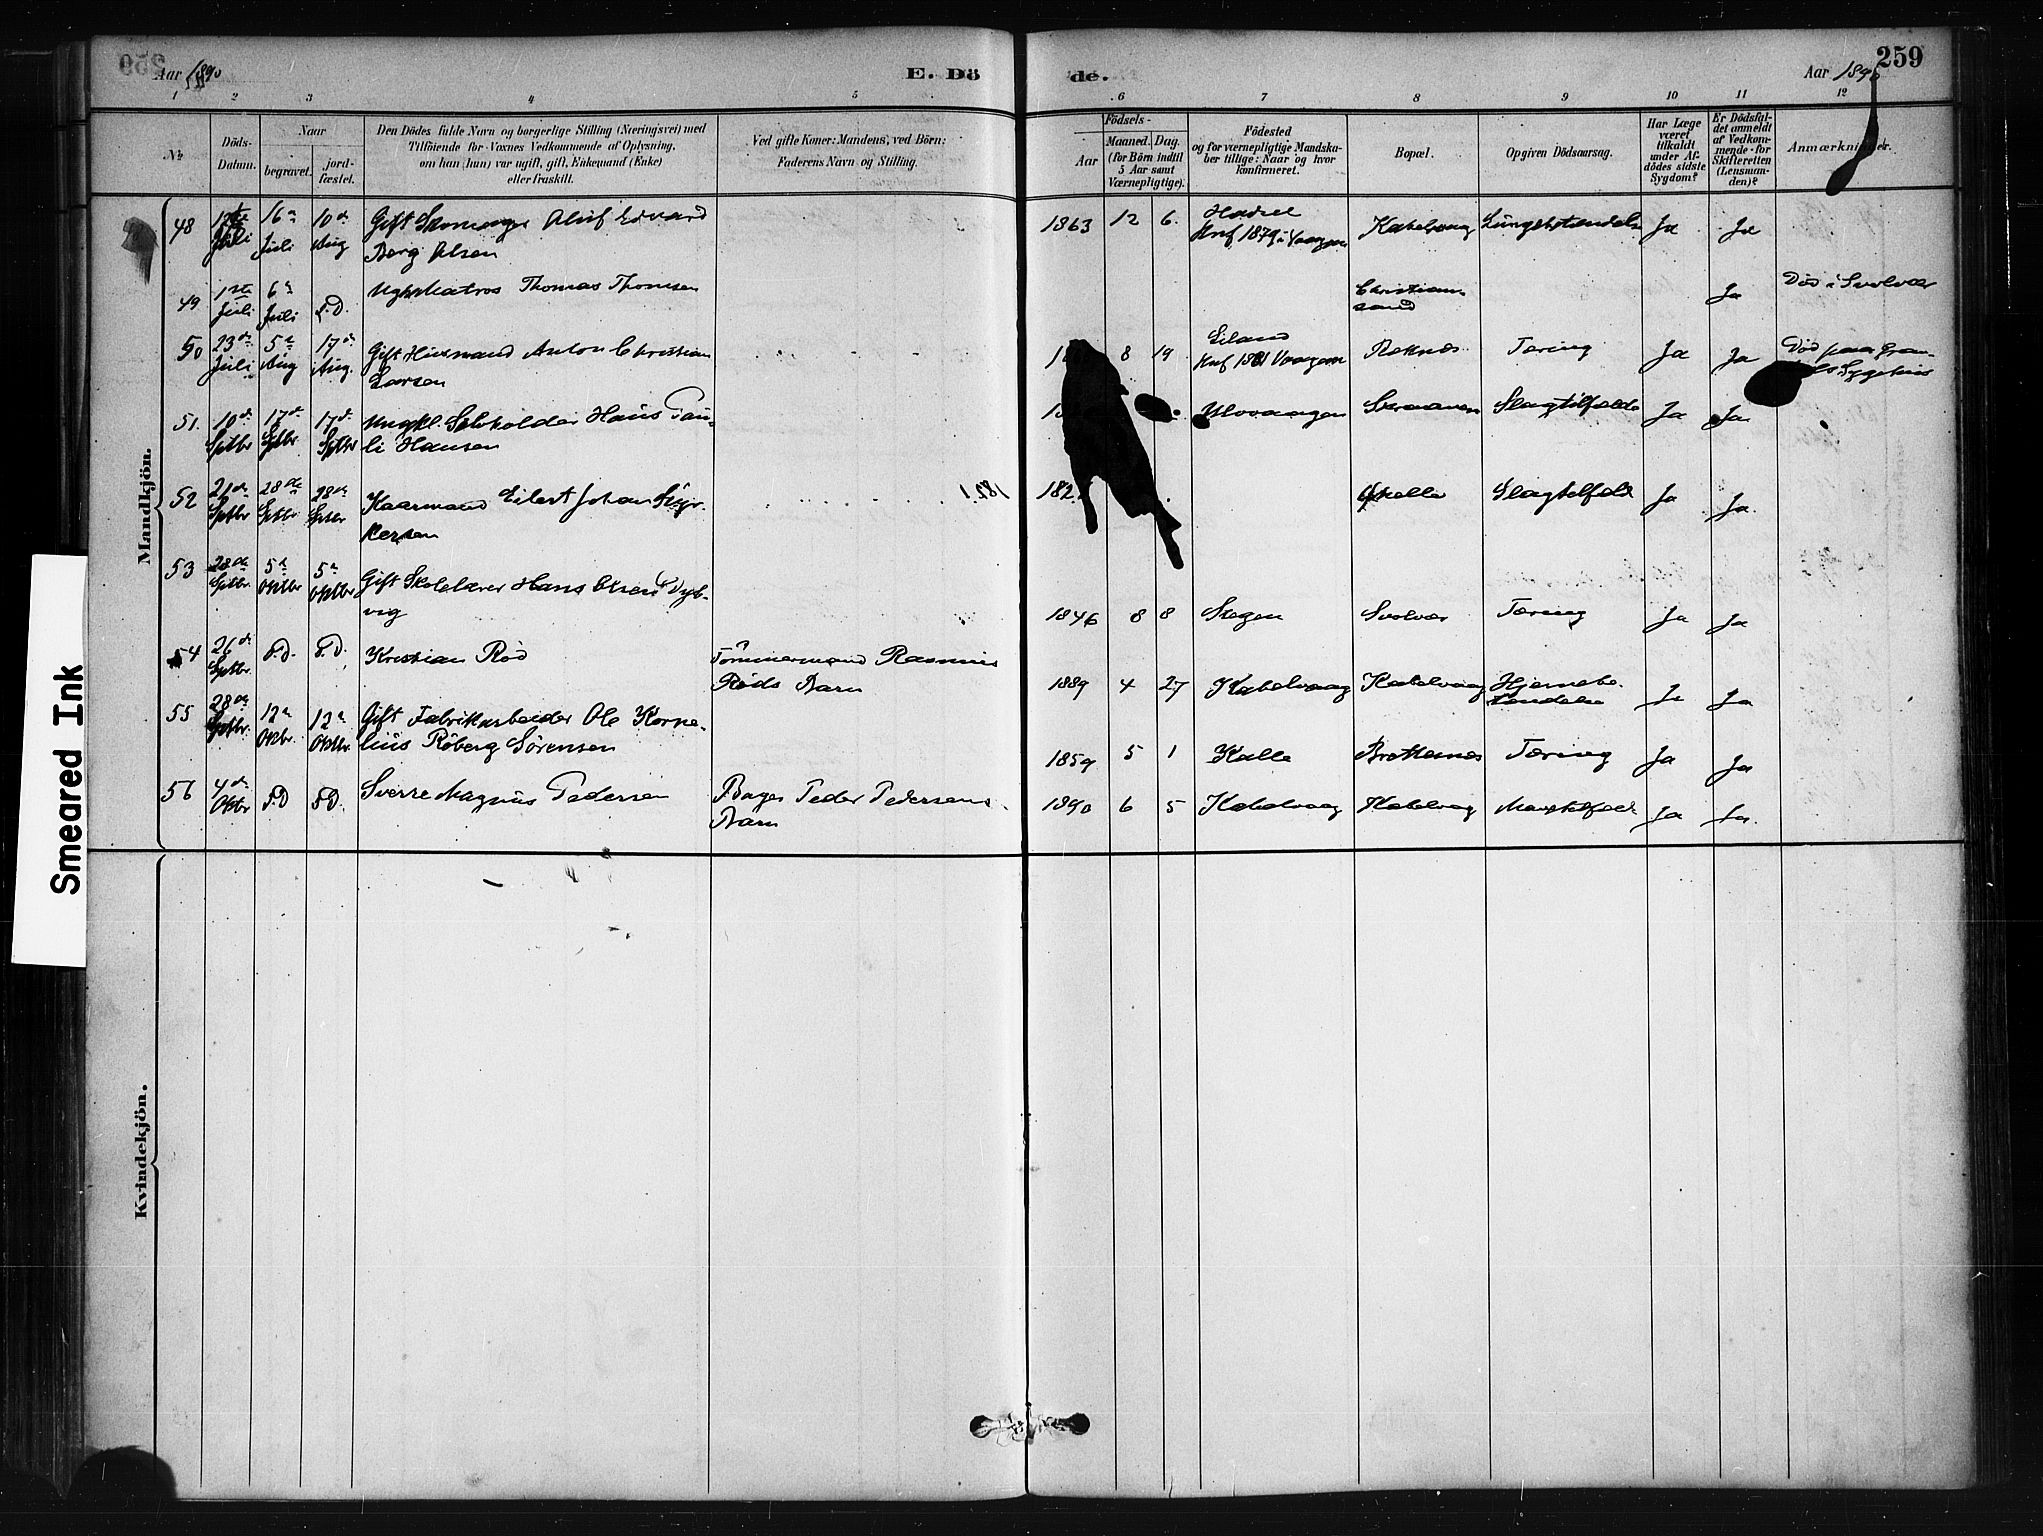 259
Aar 1890
E. Dö
de.
Aar 1890
259
1 2 3 4 5
6 7 8 9 10 11 12
№
Döds-
Datum.
Naar
begravet.
jord-
fæstet.
Den Dödes fulde Navn og borgerlige Stilling (Næringsvei) med
Tilföiende for Voxnes Vedkommende af Oplysning,
om han (hun) var ugift, gift, Enkemand (Enke)
eller fraskilt.
Ved gifte Koner: Mandens, ved Börn:
Faderens Navn og Stilling.
Födsels-
Aar
Maaned. Dag.
(for Börn indtil
5 Aar samt
Værnepligtige).
Födested
og for værnepligtige Mandska-
ber tillige: Naar og hvor
konfirmeret.
Bopæl.
Opgiven Dödsaarsag.
Har Læge
været
tilkaldt
under Af-
dödes sidste
Sygdom?
Er Dödsfal-
det anmeldt
af Vedkom-
mende for
Skifteretten
(Lensman-
den)?
Anmærkninger.
Mandkjön.
48 Juli 16 Juli 10 Aug Gift Skomager Oluf Edvard
Berg Olsen
1863 12 6. Hadsel
Knf 1879 i Vaagan Kabelvaag Lungebetændelse Ja Ja
49 1ste Juli 6 Juli S.D. Matros Thomas Thomsen
Christian-
sand Ja Död i Svolvær
50 23 Juli 5 Aug 17 Aug. Gift Husmand Anton Christian
Larsen
8 19 Eiland
Knf 1881 Vaagan Tæring Ja Ja Död paa
Sygehus
51. 10 Sptbr 17 Sptbr 17 Sptbr Ungkl. Selvholder Hans Pau-
li Hansen
Ulvaagen Skraaven Slagtilfælde Ja Ja
52 21 Sptbr 28 Sptbr 28 Sptbr Kaarmand Eilert Johan Syv-
ertsen
182 Kalle Slagtilfæld Ja Ja.
53 28 Sptbr 5 Oktbr 5 Oktbr Gift Skolelærer Hans Olsen Dyb-
vig
1846 8 8 Stegen Svolvær Tæring Ja Ja
54 26 Sptbr S.D. S.D. Kristian Röd Tömmermand Rasmus
Röds Barn
1889 4 27 Kabelvaag Kabelvaag Hjernebe-
tændelse Ja Ja
55 28 Sptbr 12 Oktbr. 12 Oktbr. Gift Fabrikarbeider Ole Korne-
lius Röberg Sörensen
1859 5 1 Kalle Brettesnes Tæring Ja Ja
56 4 Oktbr S.D S.D. Sverre Magnus Pedersen Bager Peder Pedersens
Barn
1890 6 5 Kabelvaag Kabelvaag Ja Ja.
Kvindekjön.
Smeared Ink